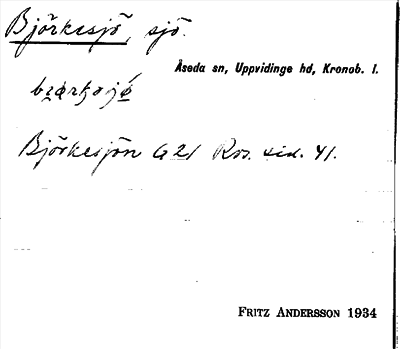 Björkesjö, sjö.
Åseda sn, Uppvidinge hd, Kronob. l.
Björkesjön G 21 Ros. sid. 41.
FRITZ ANDERSSON 1934